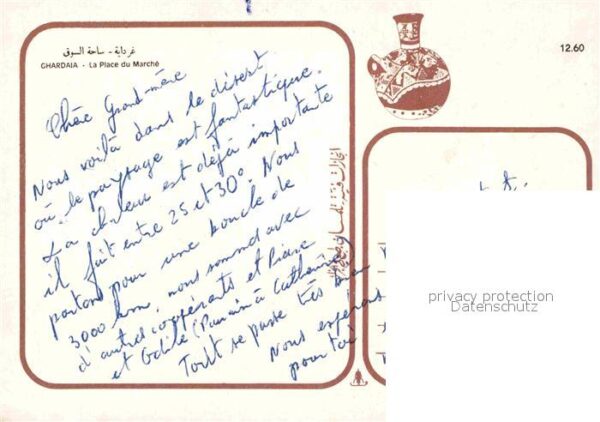 غرداية - ساحة السوق
GHARDAIA - La Place du Marché
12.60
Chère Grand-mère
Nous voilà dans le désert
où le paysage est fantastique.
La chaleur est déjà importante
il fait entre 25 et 30°. Nous
partons pour une boucle de
3000 km. nous sommes avec
d'autres coopérants et Pierre
et Odile (Parrain à Catherine)
Tout se passe très bien
Nous espérons
pour toi
privacy protection
Datenschutz